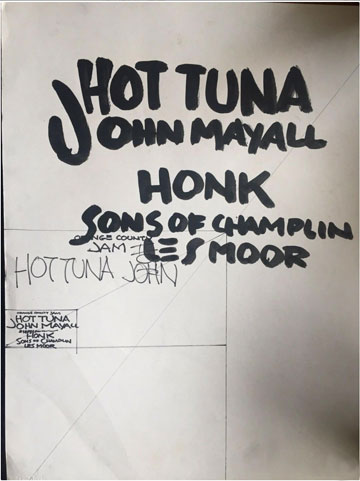 HOT TUNA
JOHN MAYALL
HONK
SONS OF CHAMPLIN
ORANGE COUNTY
JAM II
LES MOOR
HOT TUNA JOHN
ORANGE COUNTY JAM
HOT TUNA
JOHN MAYALL
HONK
SONS OF CHAMPLIN
LES MOOR